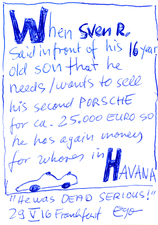 When Sven R.
Said in front of his 16 year
old son that he
needs/wants to sell
his second PORSCHE
for ca. 25.000 EURO so
he has again money
for whores in
HAVANA
"He was DEAD SERIOUS!"
29 V 16 Frankfurt